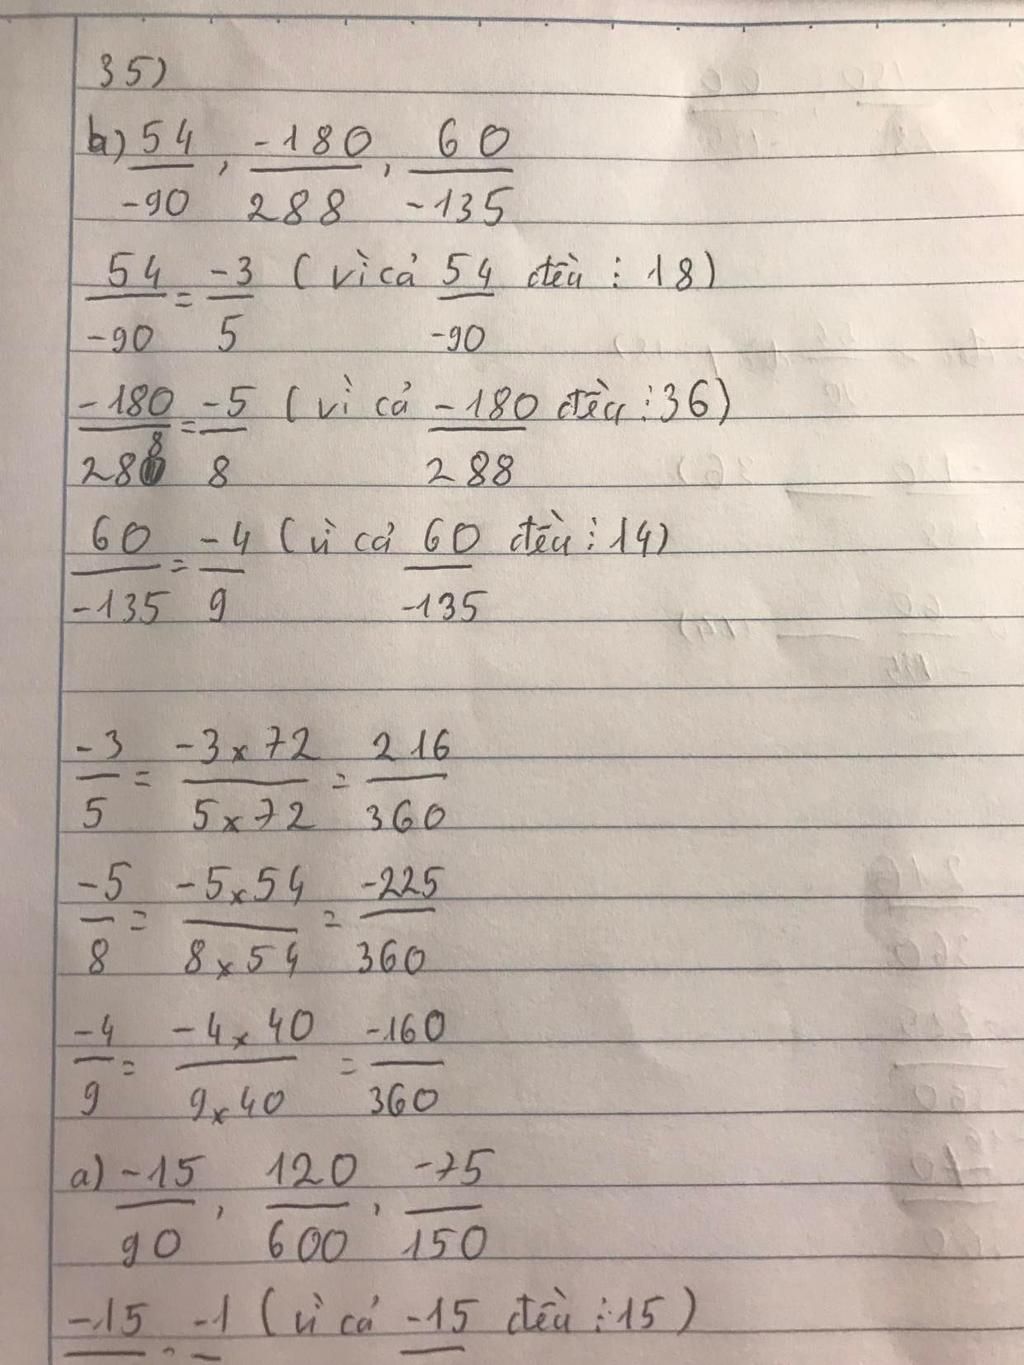 35)
b) 54/-90, -180/288, 60/-135
54/-90 = -3/5 (vì cả 54/-90 đều ⋮ 18)
-180/288 = -5/8 (vì cả -180/288 đều ⋮ 36)
60/-135 = -4/9 (vì cả 60/-135 đều ⋮ 14)
-3/5 = -3x72/5x72 = 216/360
-5/8 = -5x54/8x54 = -225/360
-4/9 = -4x40/9x40 = -160/360
a) -15/90, 120/600, -75/150
-15 = -1 (vì cả -15 đều ⋮ 15)